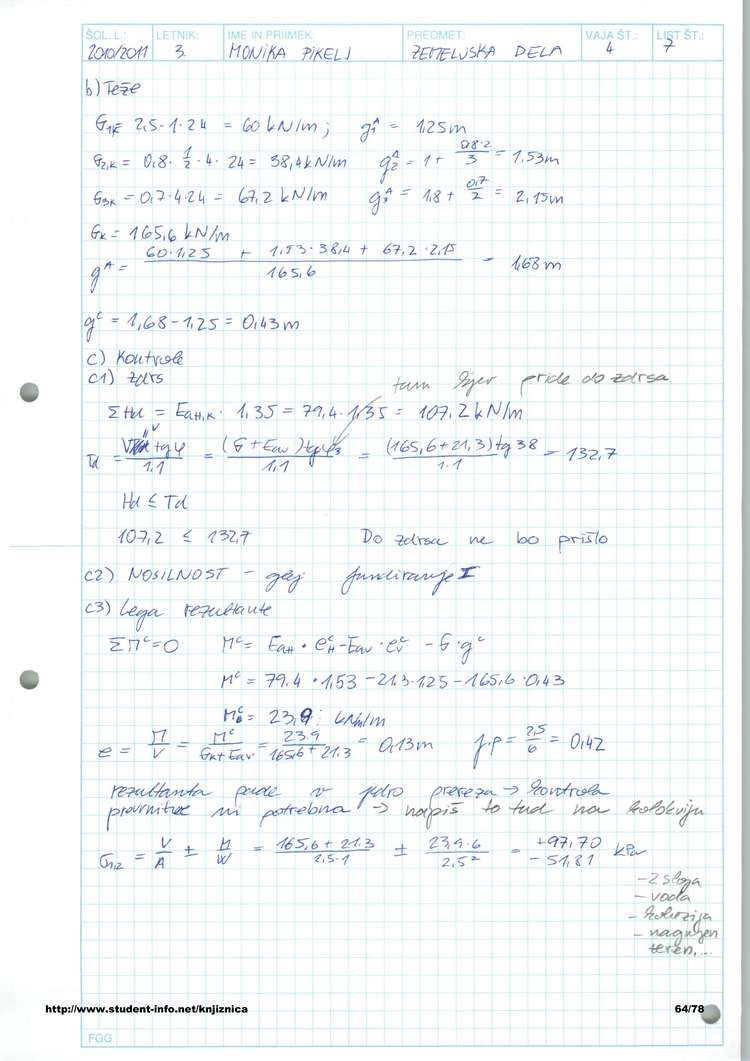 ŠOL. L.: LETNIK: IME IN PRIIMEK: PREDMET: VAJA ŠT.: LIST ŠT.:
2010/2011 3. MONIKA PIKELJ ZEMELJSKA DELA 4 7
b) Teže
G1K = 2,5·1·24 = 60 kN/m; g1^A = 1,25m
G2,K = 0,8·1/2·4·24 = 38,4 kN/m g2^A = 1 + 0,8·2/3 = 1,53m
G3K = 0,7·4·24 = 67,2 kN/m g3^A = 1,8 + 0,7/2 = 2,15m
GK = 165,6 kN/m
g^A = (60·1,25 + 1,53·38,4 + 67,2·2,15)/165,6 = 1,68 m
g^c = 1,68 - 1,25 = 0,43 m
c) Kontrole
c1) zdrs
tam kjer pride do zdrsa
ΣHd = EaH,K · 1,35 = 79,4·1,35 = 107,2 kN/m
Td = V tgφ/1,1 = (G + Eav) tgφ3/1,1 = (165,6 + 21,3) tg 38/1.1 = 132,7
Hd ≤ Td
107,2 ≤ 132,7 Do zdrsa ne bo prišlo
c2) NOSILNOST - glej fundiranje I
c3) Lega rezultante
ΣM^c = 0 M^c = EaH · eH^c - Eav · ev^c - G · g^c
M^c = 79.4 · 1,53 - 21.3·1.25 - 165,6·0,43
M^c = 23,9 kNm/m
e = M/V = M^c/(GK + Eav) = 23.9/(165,6 + 21.3) = 0,13m j.p = 2,5/6 = 0,42
rezultanta pade v jedro prereza → kontrola
prevrnitve ni potrebna → napiš to tud na kolokviju
σ1,2 = V/A ± M/W = (165,6 + 21.3)/(2,5·1) ± (23,9·6)/2,5² = +97,70 kPa
- 51,81
- 2 sloga
- voda
- kohezija
- nagnjen
teren,...
http://www.student-info.net/knjiznica
64/78
FGG